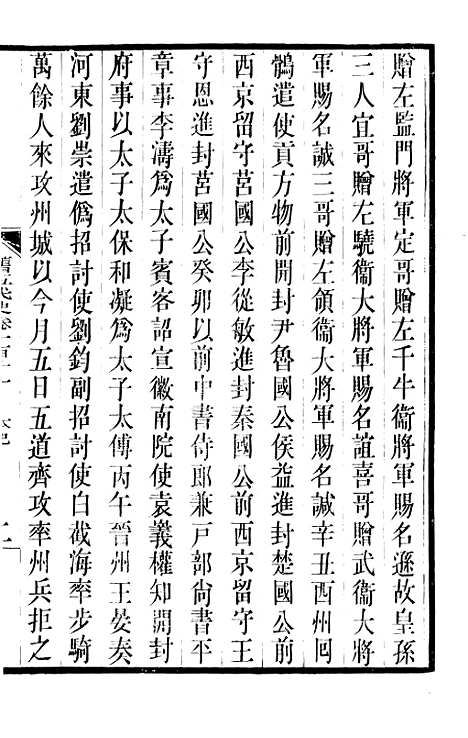 贈左監門將軍定哥贈左千牛衞將軍賜名遜故皇孫
三人宜哥贈左驍衞大將軍賜名誼喜哥贈武衞大將
軍賜名誠三哥贈左領衞大將軍賜名諴辛丑西州囘
鶻遣使貢方物前開封尹魯國公侯益進封楚國公前
西京留守莒國公李從敏進封秦國公前西京留守王
守恩進封莒國公癸卯以前中書侍郎兼戸部尙書平
章事李濤爲太子賓客詔宣徽南院使袁義權知開封
府事以太子太保和凝爲太子太傅丙午晉州王晏奏
河東劉崇遣僞招討使劉鈞副招討使白截海率步騎
萬餘人來攻州城以今月五日五道齊攻率州兵拒之
舊五代史卷一百十一 本紀